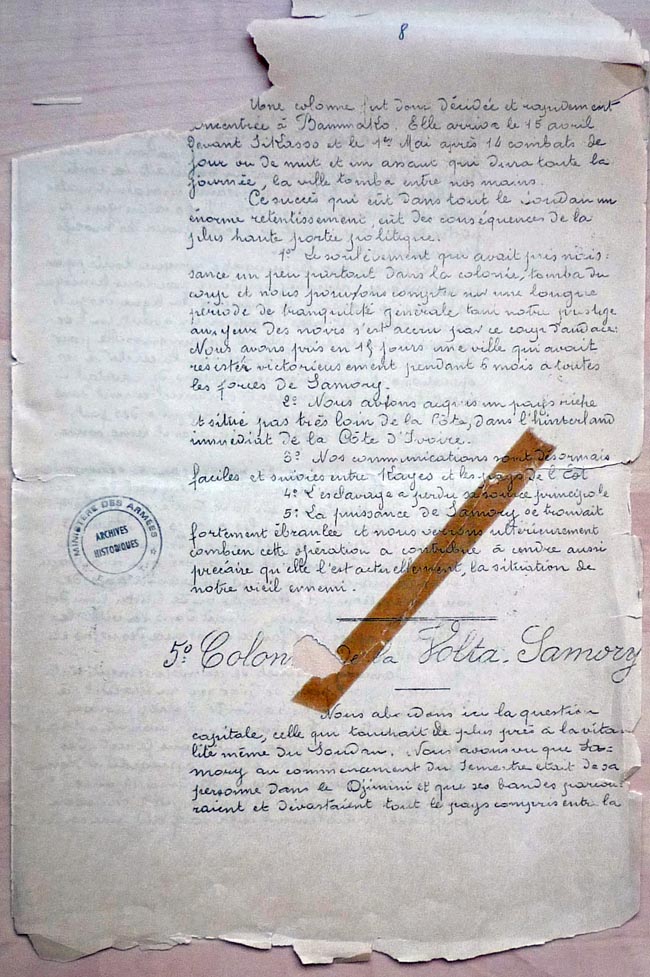 8
Une colonne fut donc décidée et rapidement
concentrée à Bammako. Elle arriva le 15 avril
devant Sikasso et le 1er Mai après 14 combats de
jour ou de nuit et un assaut qui dura toute la
journée, la ville tomba entre nos mains.
Ce succès qui eût dans tout le Soudan un
énorme retentissement, eût des conséquences de la
plus haute portée politique.
1º Le soulèvement qui avait pris nais:
sance un peu partout dans la colonie, tomba du
coup et nous pouvons compter sur une longue
période de tranquillité générale tant notre prestige
aux yeux des noirs s'est accru par ce coup d'audace:
Nous avons pris en 15 jours une ville qui avait
résister victorieusement pendant 6 mois à toutes
les forces de Samory.
2º Nous avons acquis un pays riche
et situé pas très loin de la Côte, dans l'hinterland
immédiat de la Côte d'Ivoire.
3º Nos communications sont désormais
faciles et suivies entre Kayes et les pays de l'Est
4º L'esclavage a perdu sa source principale
5º La puissance de Samory se trouvait
fortement ébranlée et nous verrons ultérieurement
combien cette opération a contribué à rendre aussi
précaire qu'elle l'est actuellement, la situation de
notre vieil ennemi.
MINISTÈRE DES ARMÉES
ARCHIVES
HISTORIQUES
5º Colon de la Volta - Samory
Nous abordons ici la question
capitale, celle qui touchait de plus près à la vita
lité même du Soudan. Nous avons vu que Sa=
mory au commencement du Semestre était de sa
personne dans le Djimini et que ses bandes parcou
raient et dévastaient tout le pays compris entre la